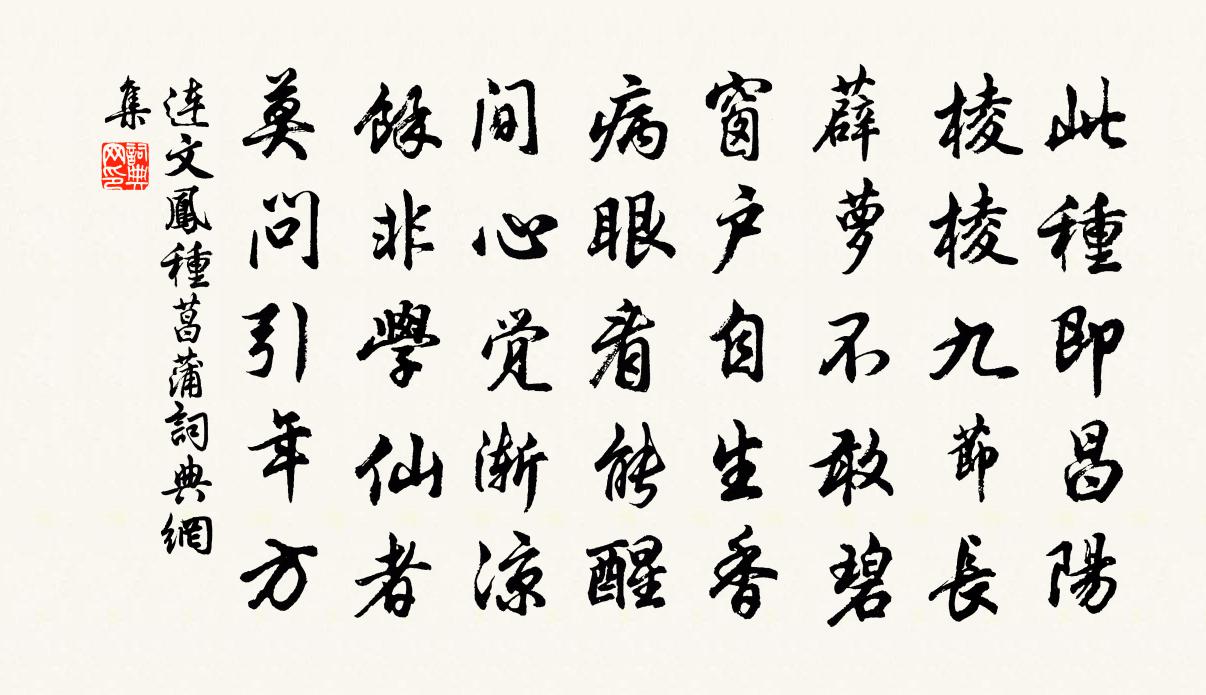 此種即昌陽
棱棱九節長
薜萝不敢碧
窗户自生香
病眼看能醒
间心觉渐涼
餘非學仙者
莫问引年方
连文鳳種菖蒲詞典網
集
詞典
网印